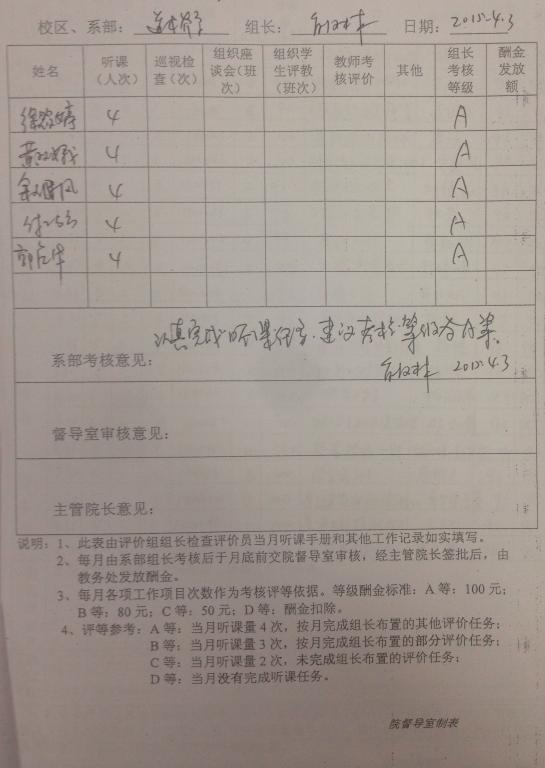 校区、系部： 组长： 日期：2015.4.3
姓名 听课（人次） 巡视检查（次） 组织座谈会（班次） 组织学生评教（班次） 教师考核评价 其他 组长考核等级 酬金发放额
4 A
4 A
4 A
4 A
4 A
认真完成听课任务，建议考核等级为A等。
系部考核意见：
2015.4.3
督导室审核意见：
主管院长意见：
说明：1、此表由评价组组长检查评价员当月听课手册和其他工作记录如实填写。
2、每月由系部组长考核后于月底前交院督导室审核，经主管院长签批后，由
教务处发放酬金。
3、每月各项工作项目次数作为考核评等依据。等级酬金标准：A 等：100 元；
B 等：80 元；C 等：50 元；D 等：酬金扣除。
4、评等参考：A 等：当月听课量 4 次，按月完成组长布置的其他评价任务；
B 等：当月听课量 3 次，按月完成组长布置的部分评价任务；
C 等：当月听课量 2 次，未完成组长布置的评价任务；
D 等：当月没有完成听课任务。
院督导室制表